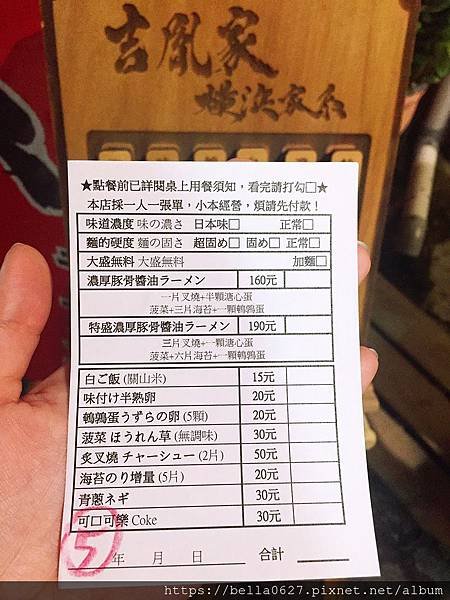 吉凰家
横浜家系
★點餐前已詳閱桌上用餐須知，看完請打勾□★
本店採一人一張單，小本經營，煩請先付款！
味道濃度 味の濃さ 日本味□ 正常□
麵的硬度 麺の固さ 超固め□ 固め□ 正常□
大盛無料 大盛無料 加麵□
濃厚豚骨醬油ラーメン 160元
一片叉燒+半顆溏心蛋
菠菜+三片海苔+一顆鵪鶉蛋
特盛濃厚豚骨醬油ラーメン 190元
三片叉燒+一顆溏心蛋
菠菜+六片海苔+一顆鵪鶉蛋
白ご飯 (關山米) 15元
味付け半熟卵 20元
鵪鶉蛋うずらの卵 (5顆) 20元
菠菜 ほうれん草 (無調味) 30元
炙叉燒 チャーシュー (2片) 50元
海苔のり增量 (5片) 20元
青蔥ネギ 30元
可口可樂 Coke 30元
5
年 月 日 合計
https://bella0627.pixnet.net/album